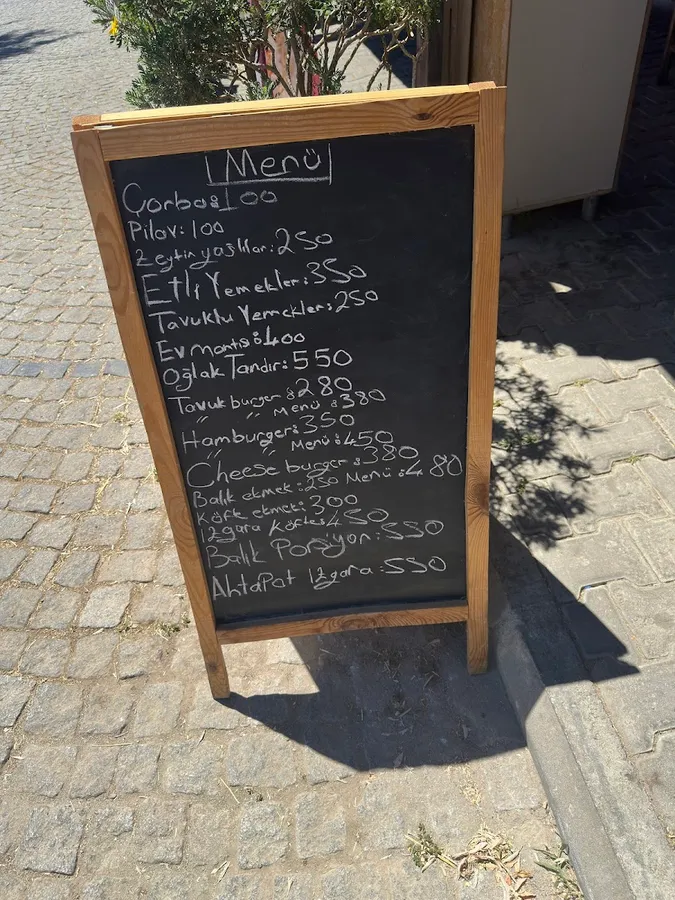 Menü
Çorba: 100
Pilav: 100
Zeytinyağlılar: 250
Etli Yemekler: 350
Tavuklu Yemekler: 250
Ev Mantısı: 400
Oğlak Tandır: 550
Tavuk burger: 280
" " Menü: 380
Hamburger: 350
" " Menü: 450
Cheese burger: 380
Menü: 480
Balık ekmek: 250
Köfte ekmek: 300
Izgara Köfte: 450
Balık Porsiyon: 550
Ahtapot Izgara: 550